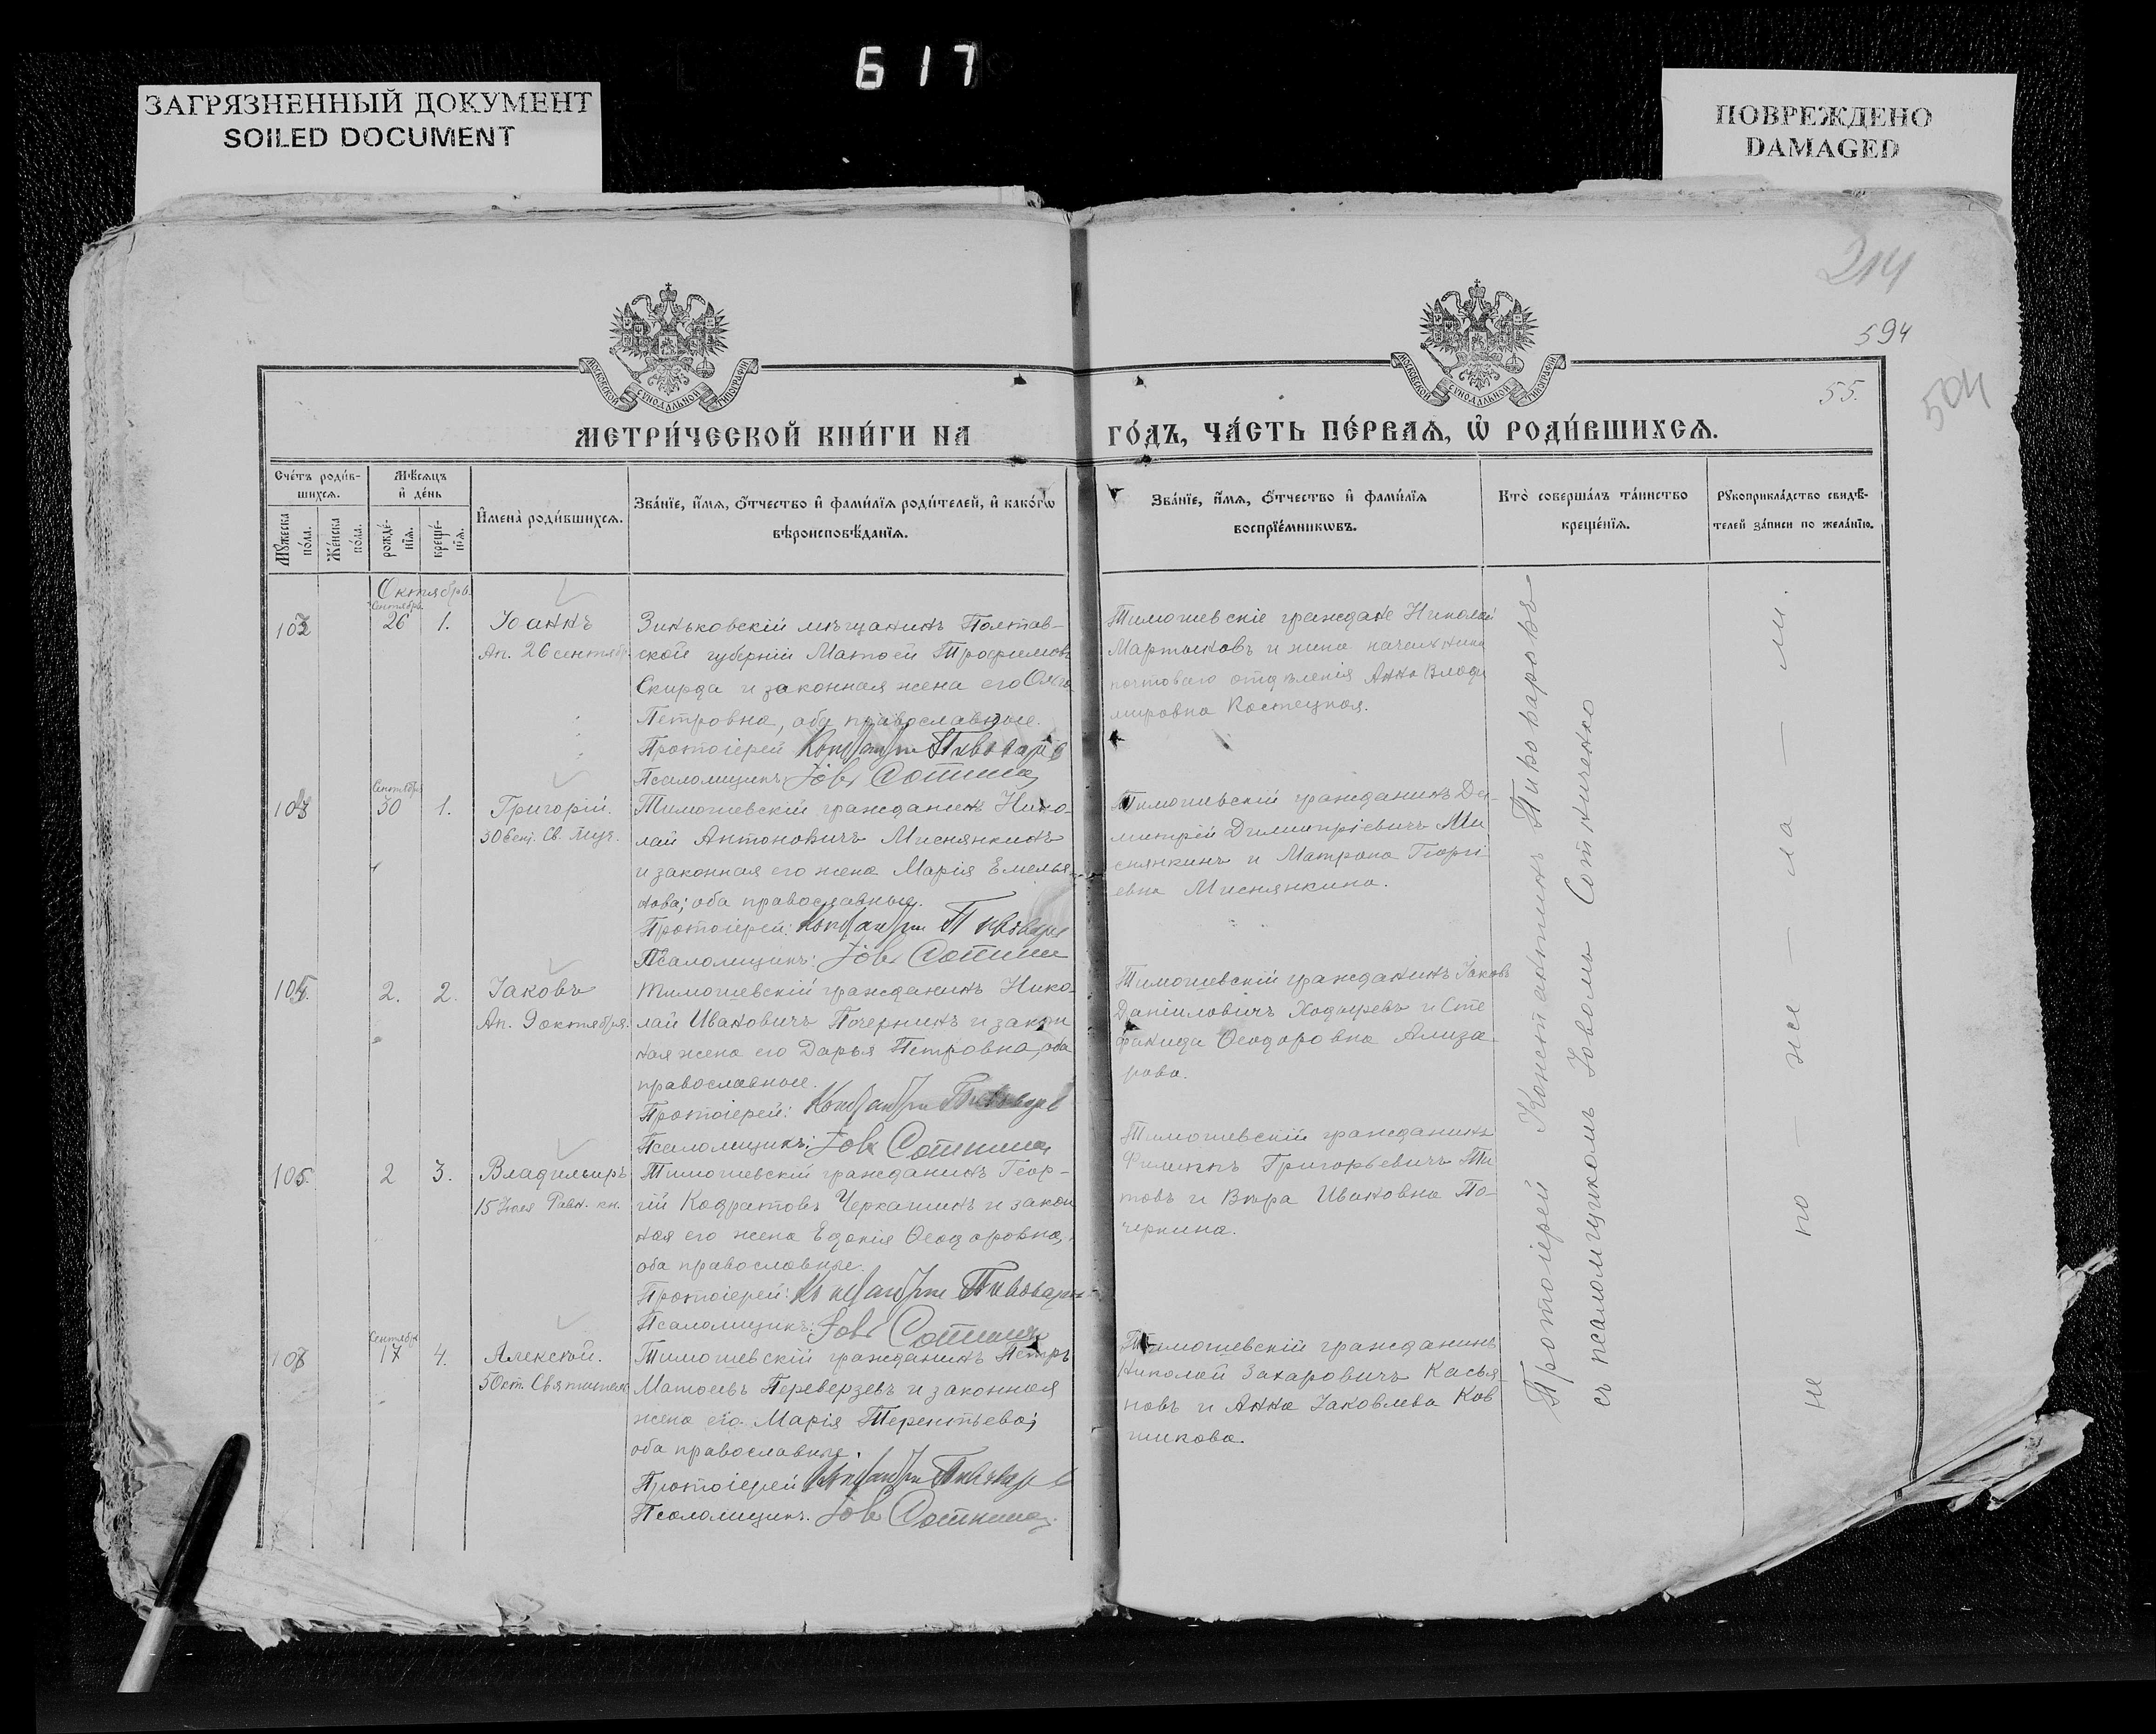 617
ЗАГРЯЗНЕННЫЙ ДОКУМЕНТ
SOILED DOCUMENT
ПОВРЕЖДЕНО
DAMAGED
214
594
504
55.
МОСКОВСКОЙ СѴНОДАЛЬНОЙ ТИПОГРАФІИ
МОСКОВСКОЙ СѴНОДАЛЬНОЙ ТИПОГРАФІИ
МЕТРИ́ЧЕСКОЙ КНИ́ГИ НА ГО́ДЪ, ЧА́СТЬ ПЕ́РВАѦ, Ѡ҆ РОДИ́ВШИХСѦ.
Сче́тъ роди́в-
шихсѧ.
Мꙋ́жеска по́ла.
Же́нска по́ла.
Мѣ́сѧцъ
и҆ де́нь
рожде́-
нїѧ.
креще́-
нїѧ.
И҆мена̀ роди́вшихсѧ.
Зва́нїе, и҆́мѧ, ѻ҆́тчество и҆ фами́лїѧ роди́телей, и҆ како́гѡ
вѣроисповѣ́данїѧ.
Зва́нїе, и҆́мѧ, ѻ҆́тчество и҆ фами́лїѧ
воспрїе́мникѡвъ.
Кто̀ соверша́лъ та́инство
креще́нїѧ.
Рꙋкоприкла́дство свидѣ́-
телей за́писи по жела́нїю.
Октябрь.
Сентябрь
26 1.
Іоаннъ
Ап. 26 сентябр.
Зиньковскій мѣщанинъ Полтав-
ской губерніи Матѳей Трофимовъ
Скирда и законная жена его Ольга
Петровна, оба православные.
Протоіерей Константин Пивоваров
Псаломщикъ: Іов Сотнич
Тимошевскіе граждане Николай
Мартыновъ и жена начальника
почтоваго отдѣленія Анна Влади
мировна Костецкая.
103
Сентябрь
30 1.
Григорій.
30 Сент. Св. Муч.
Тимошевскій гражданинъ Нико-
лай Антоновичъ Миснянкинъ
и законная его жена Марія Емелья-
нова; оба православные.
Протоіерей: Константин Пивоваров
Псаломщикъ: Іов Сотнич
Тимошевскій гражданинъ Ди-
митрій Димитріевичъ Ми
снянкинъ и Матрона Георгі
евна Миснянкина.
104.
2. 2.
Іаковъ
Ап. 9 октября.
Тимошевскій гражданинъ Нико-
лай Ивановичъ Почернинъ и закон
ная жена его Дарья Петровна, оба
православные.
Протоіерей: Константин Пивоваров
Псаломщикъ: Іов Сотнич
Тимошевскій гражданинъ Іаковъ
Даніиловичъ Ходыревъ и Сте
фанида Ѳеодоровна Ализа-
рова.
105.
2 3.
Владиміръ
15 Іюля Равн. кн.
Тимошевскій гражданинъ Геор-
гій Кодратовъ Черкашинъ и закон
ная его жена Евдокія Ѳеодоровна,
оба православные.
Протоіерей: Константин Пивоваров
Псаломщикъ: Іов Сотнич
Тимошевскій гражданинъ
Филиппъ Григорьевичъ Ти
товъ и Вѣра Ивановна По-
чернина.
Сентябрь
17 4.
Алексѣй.
5 Окт. Святителя
Тимошевскій гражданинъ Петръ
Матѳеевъ Переверзевъ и законная
жена его Марія Терентьева;
оба православные.
Протоіерей Константин Пивоваров
Псаломщикъ. Іов Сотнич
Тимошевскій гражданинъ
Николай Захаровичъ Касья-
новъ и Анна Іаковлева Ков
шикова.
Протоіерей Константинъ Пивоваровъ
съ псаломщикомъ Іовомъ Сотниченко
не – по – же – ла – ли.